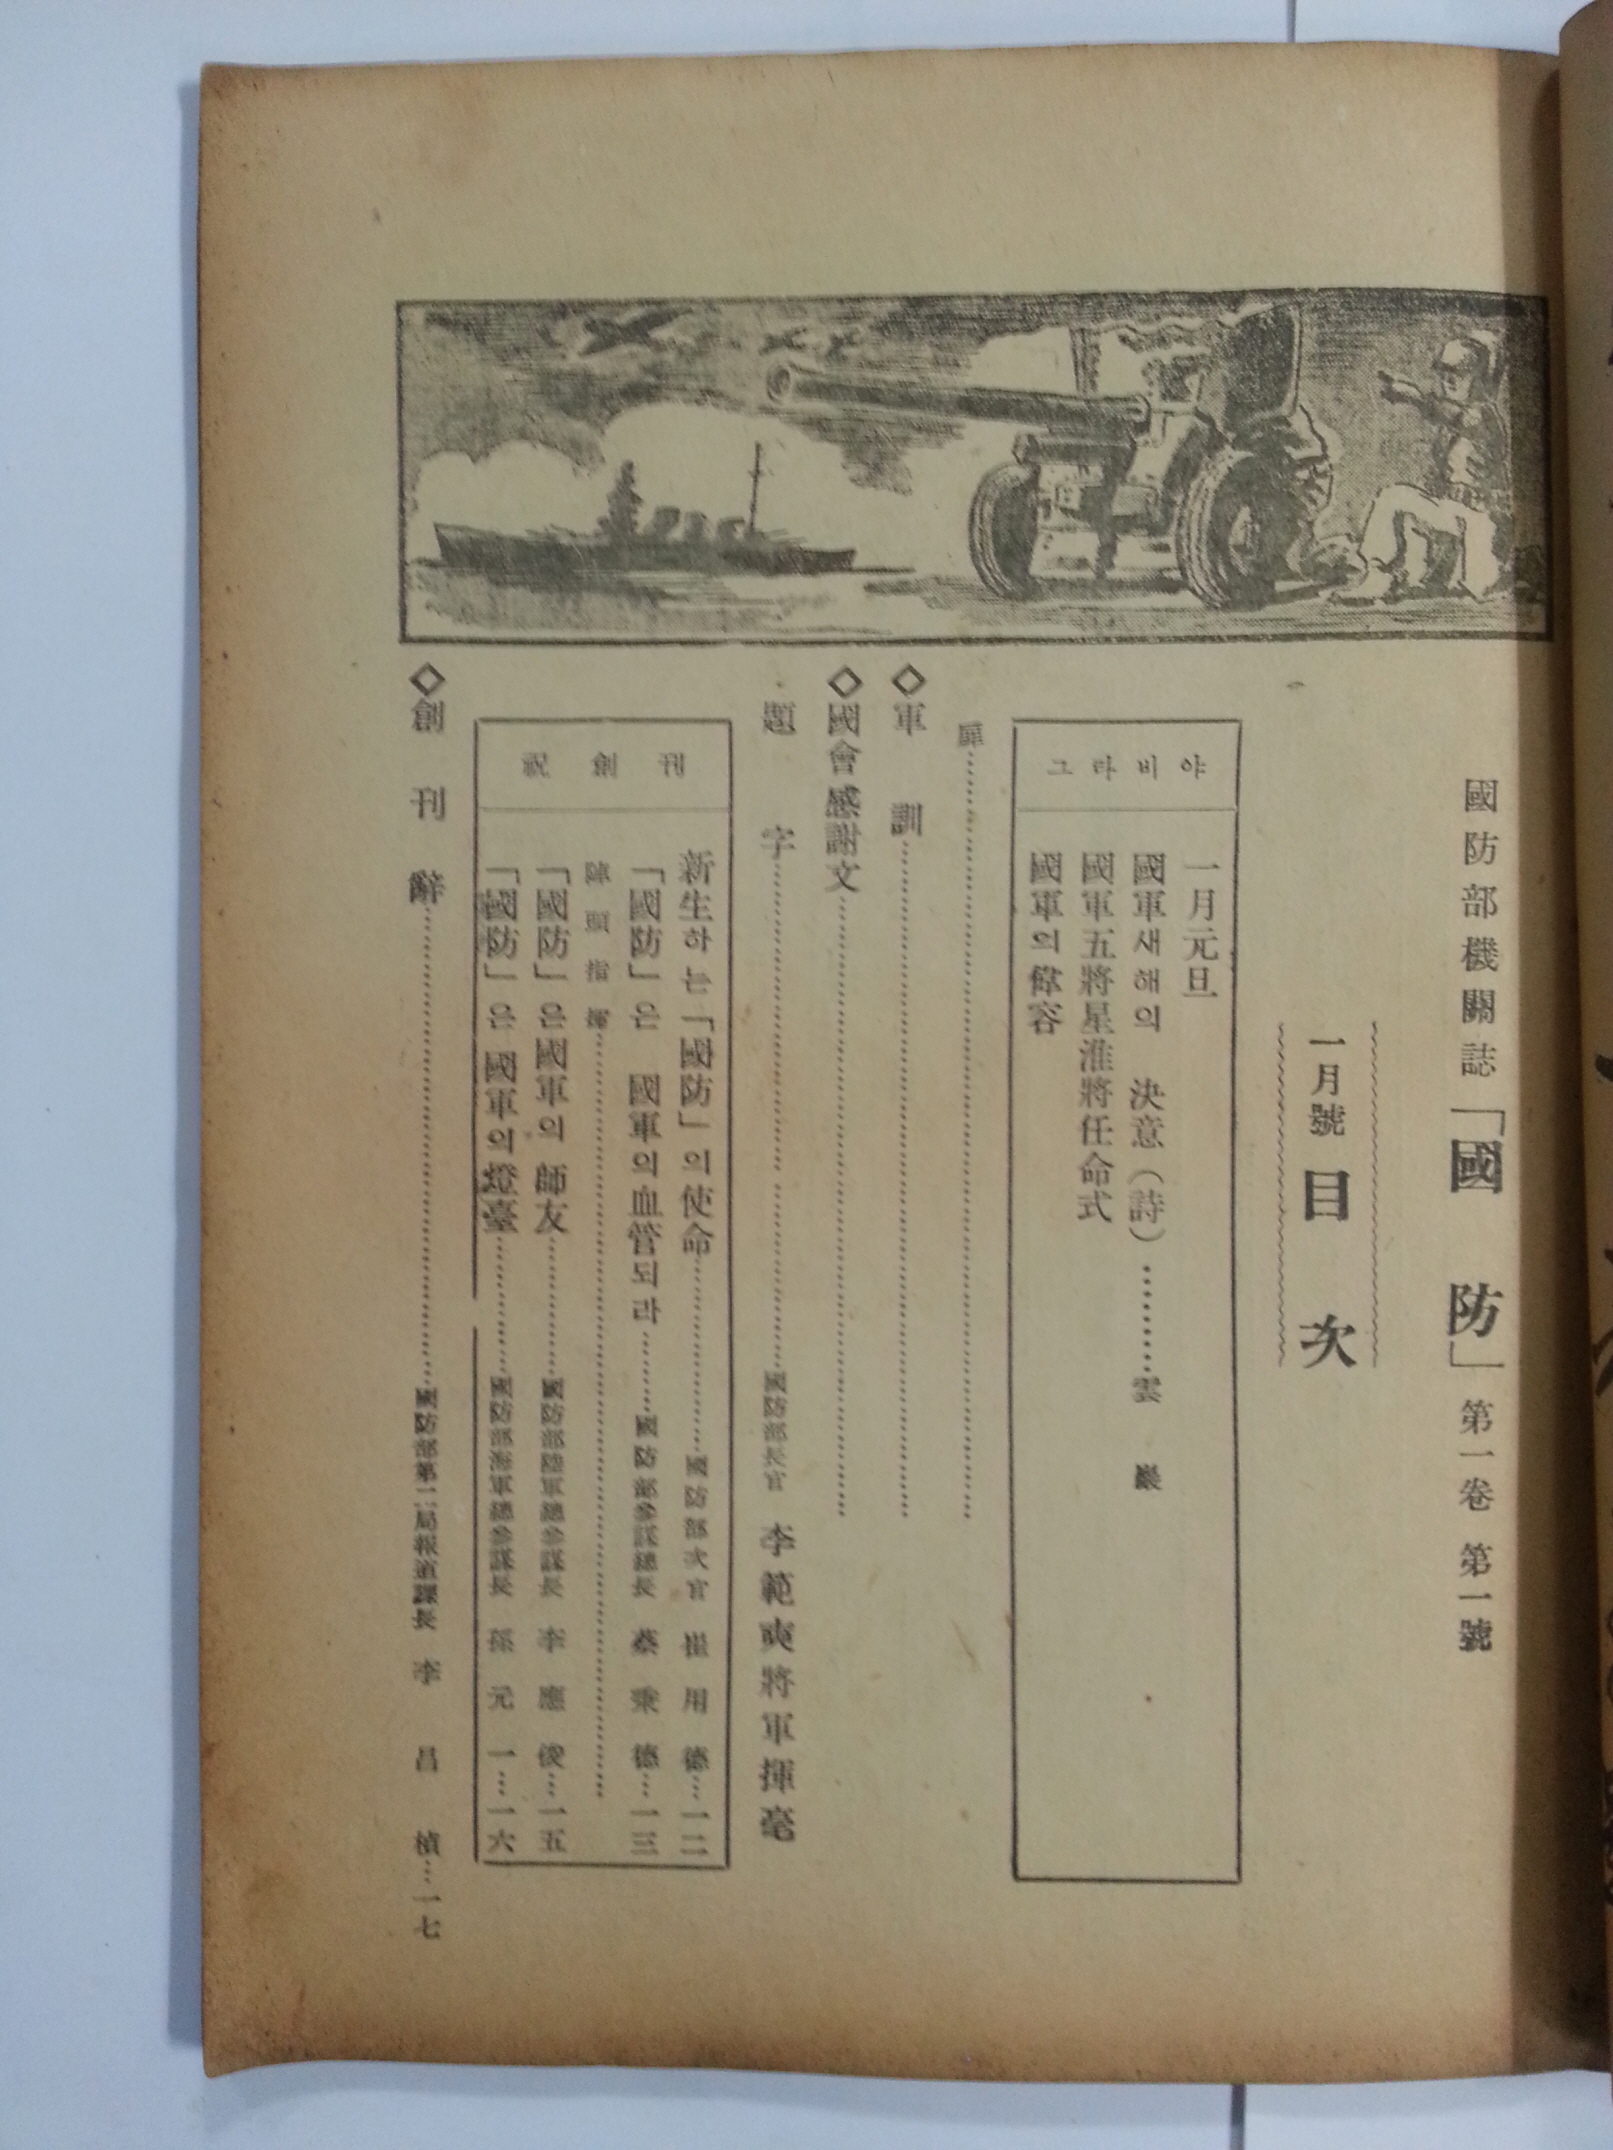 國防部機關誌「國防」第一卷 第一號
一月號 目次
그라비야
一月元旦
國軍새해의 決意(詩)…………雲巖
國軍五將星准將任命式
國軍의偉容
扉……………………
◇軍訓……………………
◇國會感謝文……………………
題字……………………國防部長官 李範奭將軍揮毫
祝創刊
新生하는「國防」의使命……………國防部次官 崔用德…一二
「國防」은 國軍의血管되라………國防部參謀總長 蔡秉德…一三
陣頭指揮……………………
「國防」은國軍의師友……………國防部陸軍總參謀長 李應俊…一五
「國防」은國軍의燈臺……………國防部海軍總參謀長 孫元一…一六
◇創刊辭……………………國防部第二局報道課長 李昌楨…一七